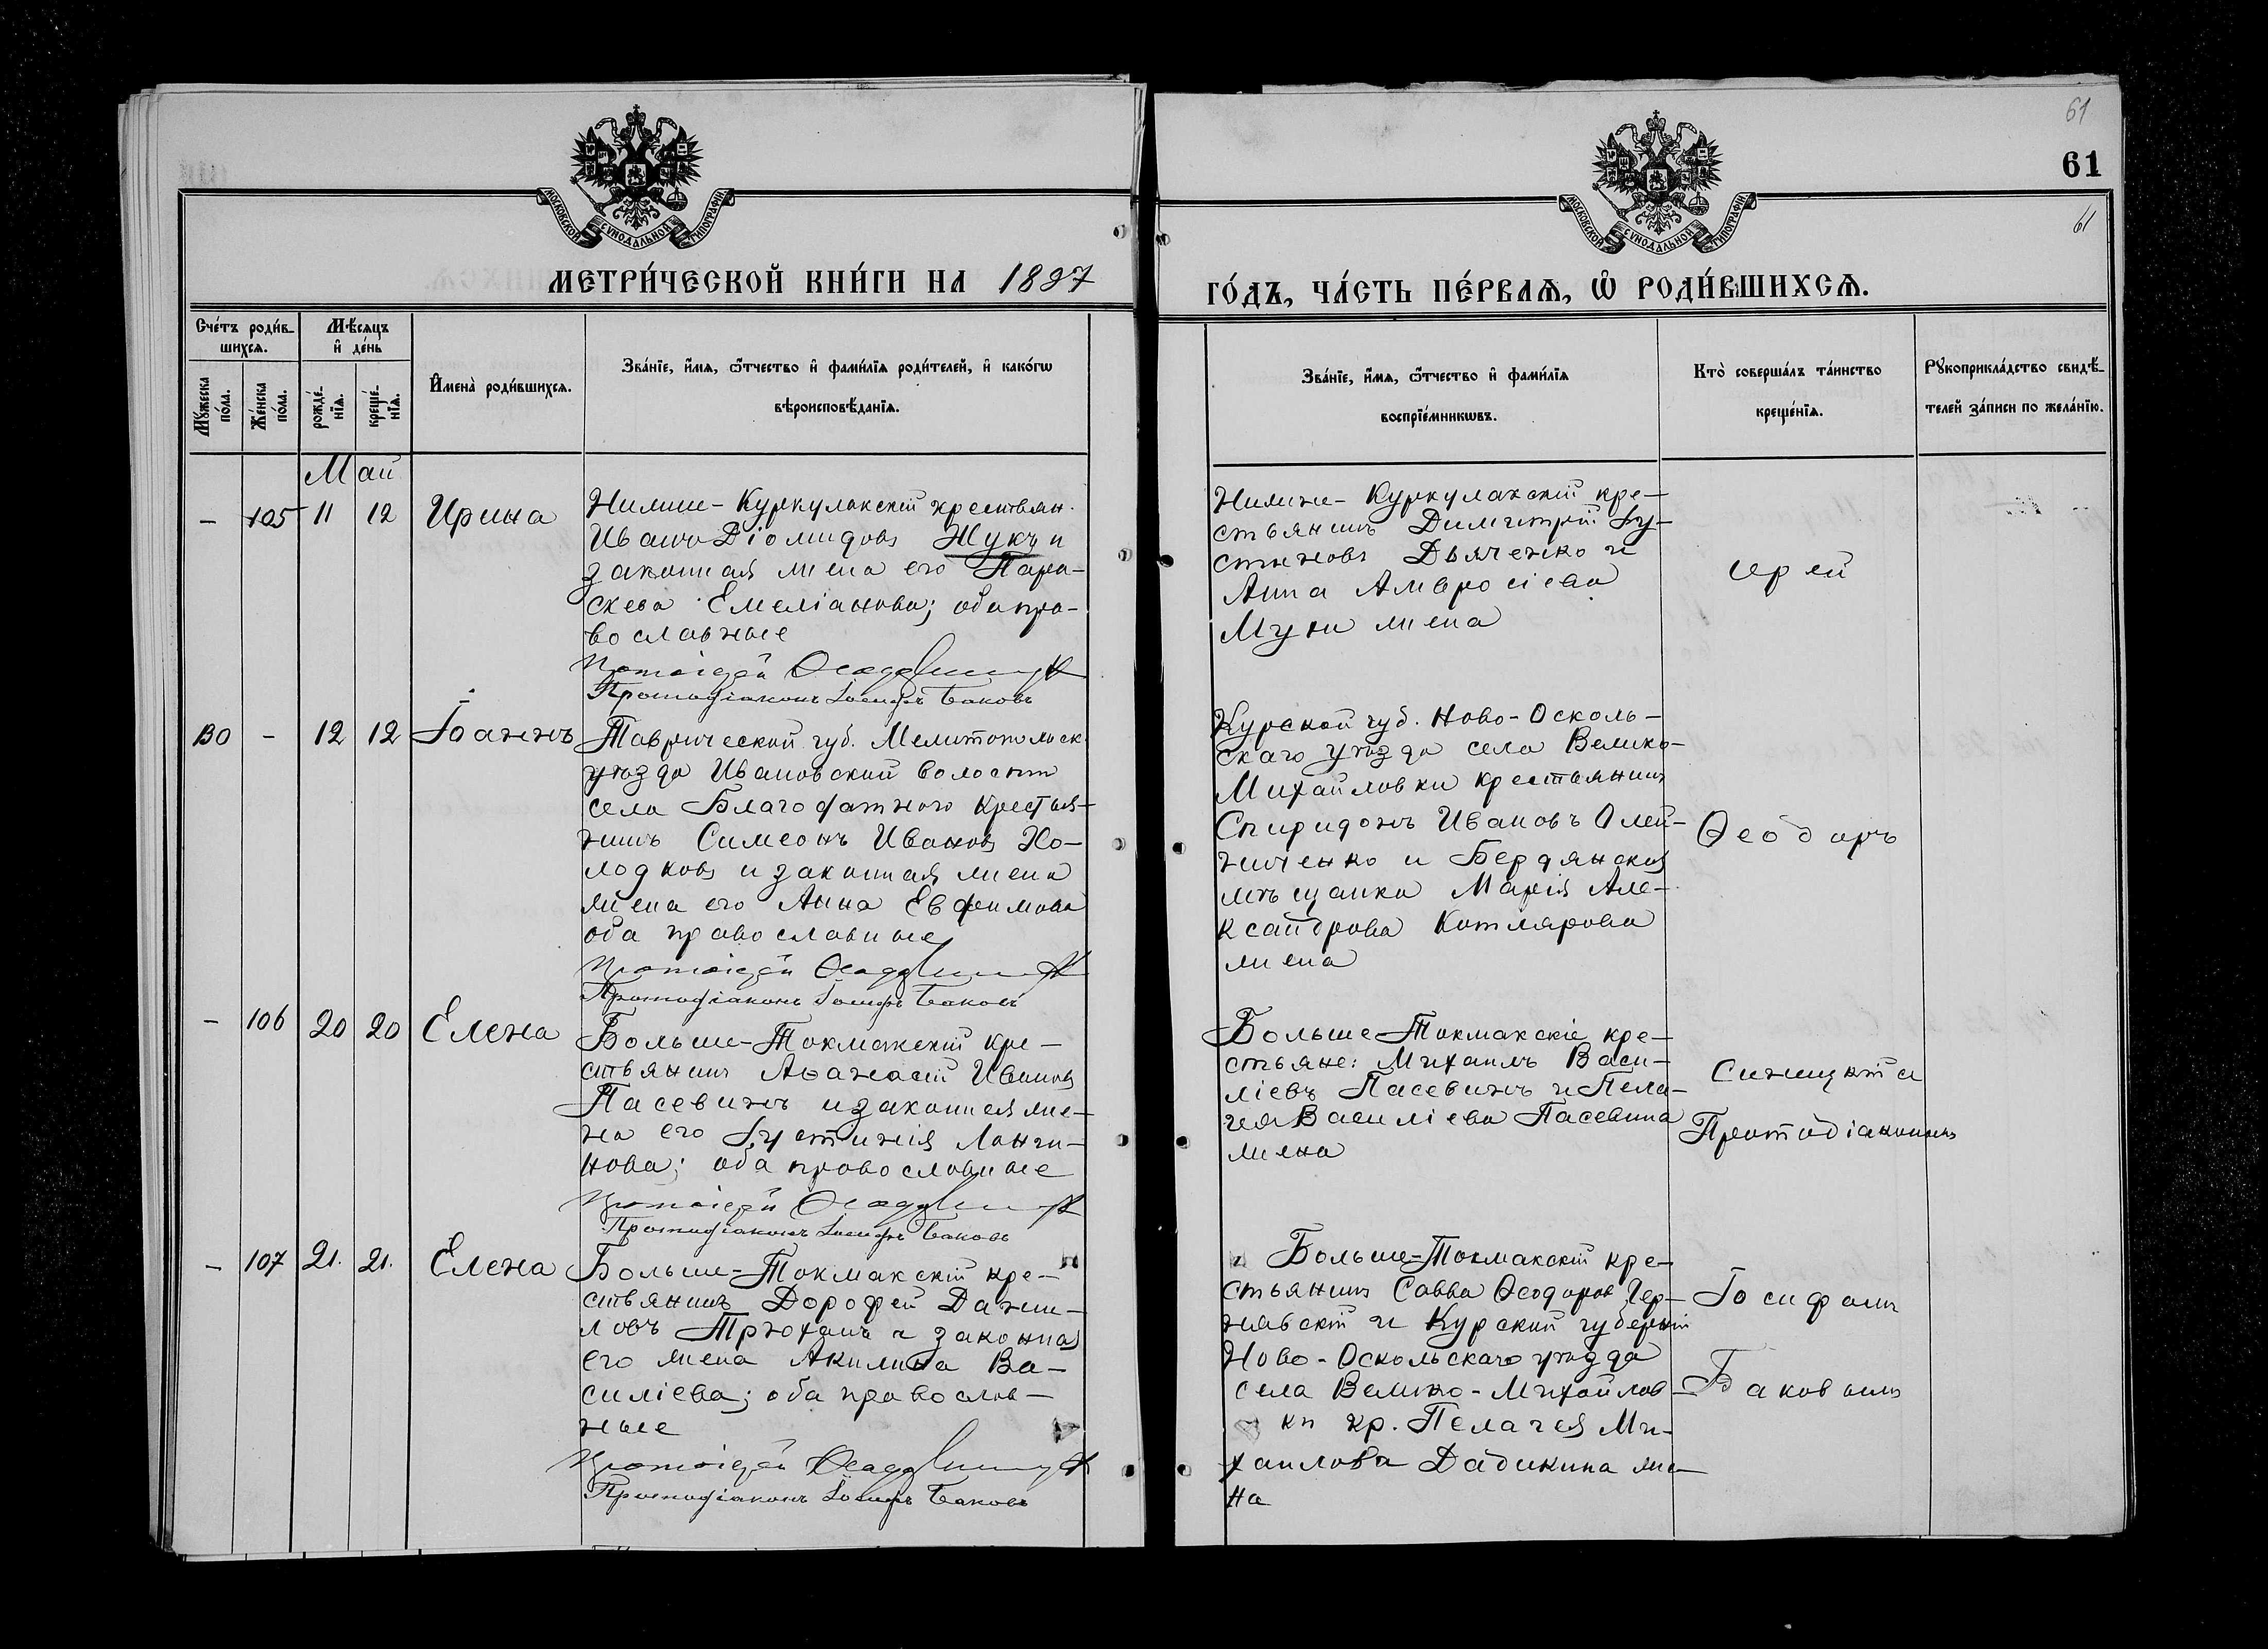 61
61
61
МОСКОВСКОЙ СѴНОДАЛЬНОЙ ТИПОГРАФІИ
МОСКОВСКОЙ СѴНОДАЛЬНОЙ ТИПОГРАФІИ
МЕТРИ́ЧЕСКОЙ КНИ́ГИ НА 1897
ГО́ДЪ, ЧА́СТЬ ПЕ́РВАѦ, Ѡ҆ РОДИ́ВШИХСѦ.
Сче́тъ роди́в-
шихсѧ.
Мѣ́сѧцъ
и҆ де́нь
Мꙋ́жеска по́ла.
Же́нска по́ла.
рожде́-
нїѧ.
креще́-
нїѧ.
И҆мена̀ роди́вшихсѧ.
Зва́нїе, и҆́мѧ, ѻ҆́тчество и҆ фами́лїѧ роди́телей, и҆ како́гѡ
вѣроисповѣ́данїѧ.
Зва́нїе, и҆́мѧ, ѻ҆́тчество и҆ фами́лїѧ
воспрїе́мникѡвъ.
Кто̀ соверша́лъ та́инство
креще́нїѧ.
Рꙋкоприкла́дство свидѣ́-
телей за́писи по жела́нїю.
Май
- 105 11 12 Ирина
Нижне-Куркулакскій крестьян.
Иванъ Діомидовъ Жукъ и
законная жена его Пара-
скева Емеліанова; оба пра-
вославные
Протоіерей
Протодіаконъ Іосифъ Баковъ
Нижне-Куркулакскій кре-
стьянинъ Димитрій Іу-
стиновъ Дьяченко и
Анна Амвросіева
Жукъ жена
ерей
130 - 12 12 Іоаннъ
Таврической губ. Мелитопольск.
уѣзда Ивановской волости
села Благодатного крестья-
нинъ Симеонъ Ивановъ Хо-
лодковъ и законная жена
жена его Анна Евфимова
оба православные
Протоіерей
Протодіаконъ Іосифъ Баковъ
Курской губ. Ново-Осколь-
скаго уѣзда села Велико-
Михайловки крестьянинъ
Спиридонъ Ивановъ Олей-
ниченко и Бердянская
мѣщанка Марія Але-
ксандрова Котлярова
жена
Ѳеодоръ
- 106 20 20 Елена
Больше-Токмакскій кре-
стьянинъ Аѳанасій Ивановъ
Пасевинъ и законная же-
на его Іустинія Лонги-
нова; оба православные
Протоіерей
Протодіаконъ Іосифъ Баковъ
Больше-Токмакскіе кре-
стьяне: Михаилъ Васи-
ліевъ Пасевинъ и Пела-
гія Василіева Пасевина
жена
Синицкій
Протодіакономъ
- 107 21. 21. Елена
Больше-Токмакскій кре-
стьянинъ Дорофей Дани-
ловъ Трюханъ и законная
его жена Акилина Ва-
силіева; оба православ-
ные
Протоіерей
Протодіаконъ Іосифъ Баковъ
Больше-Токмакскій кре-
стьянинъ Савва Ѳеодоровъ Чер-
нявскій и Курской губерніи
Ново-Оскольскаго уѣзда
села Велико-Михайлов-
ки кр. Пелагея Ми-
хаилова Дадикина же-
на
Іосифомъ
Баковымъ